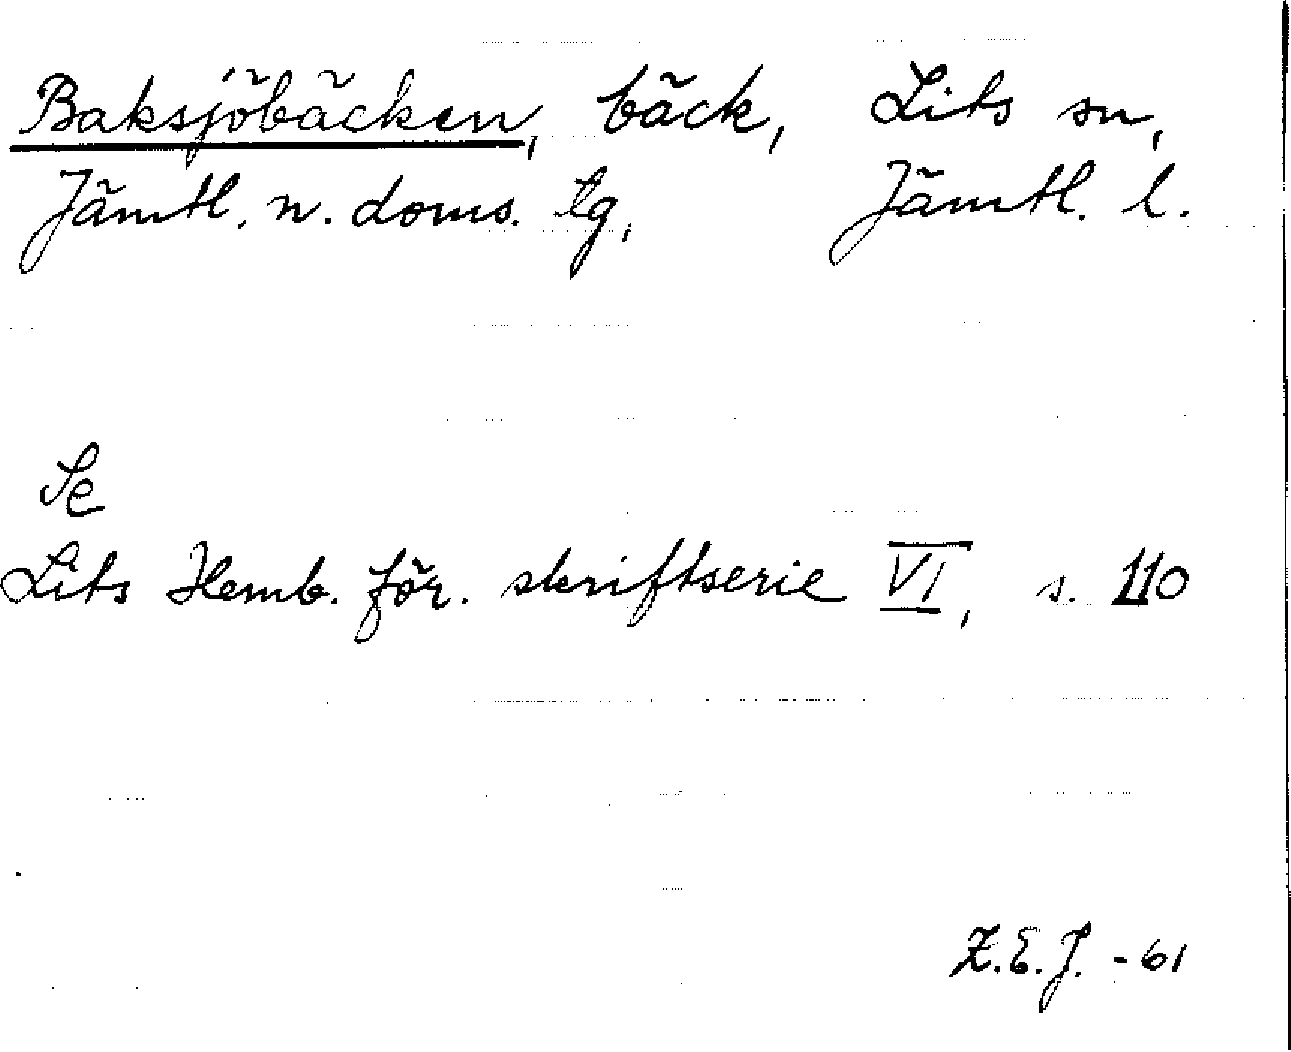 Baksjöbäcken, bäck, Lits sn,
Jämtl. n. doms. tg, Jämtl. l.
Se
Lits Hemb. för. skriftserie VI, s. 110
Z.E.J. -61